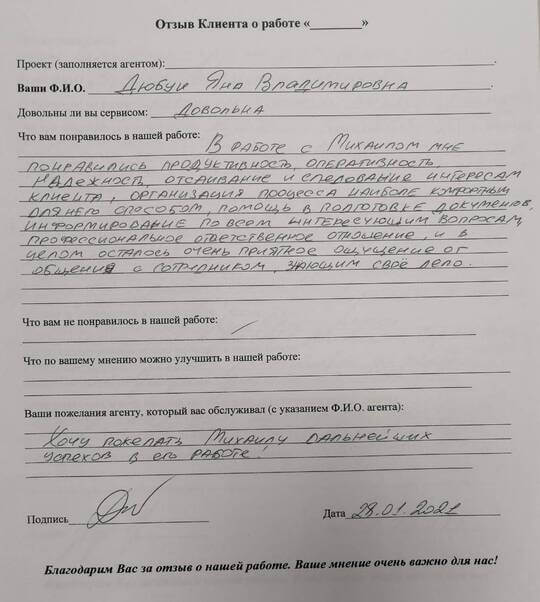 Отзыв Клиента о работе «________»
Проект (заполняется агентом):
Ваши Ф.И.О. Дюбуи Яна Владимировна
Довольны ли вы сервисом: Довольна
Что вам понравилось в нашей работе: В работе с Михаилом мне
понравились продуктивность, оперативность,
надежность, отсаивание и следование интересам
клиента, организация процесса наиболе комфортным
для него способом, помощь в подготовке документов,
информирование по всем интересующим вопросам,
профессиональное ответственное отношение, и в
целом осталось очень приятное ощущение от
общения с сотрудником, знающим своё дело.
Что вам не понравилось в нашей работе:
Что по вашему мнению можно улучшить в нашей работе:
Ваши пожелания агенту, который вас обслуживал (с указанием Ф.И.О. агента):
Хочу пожелать Михаилу дальнейших
успехов в его работе!
Подпись
Дата 28.01.2021
Благодарим Вас за отзыв о нашей работе. Ваше мнение очень важно для нас!